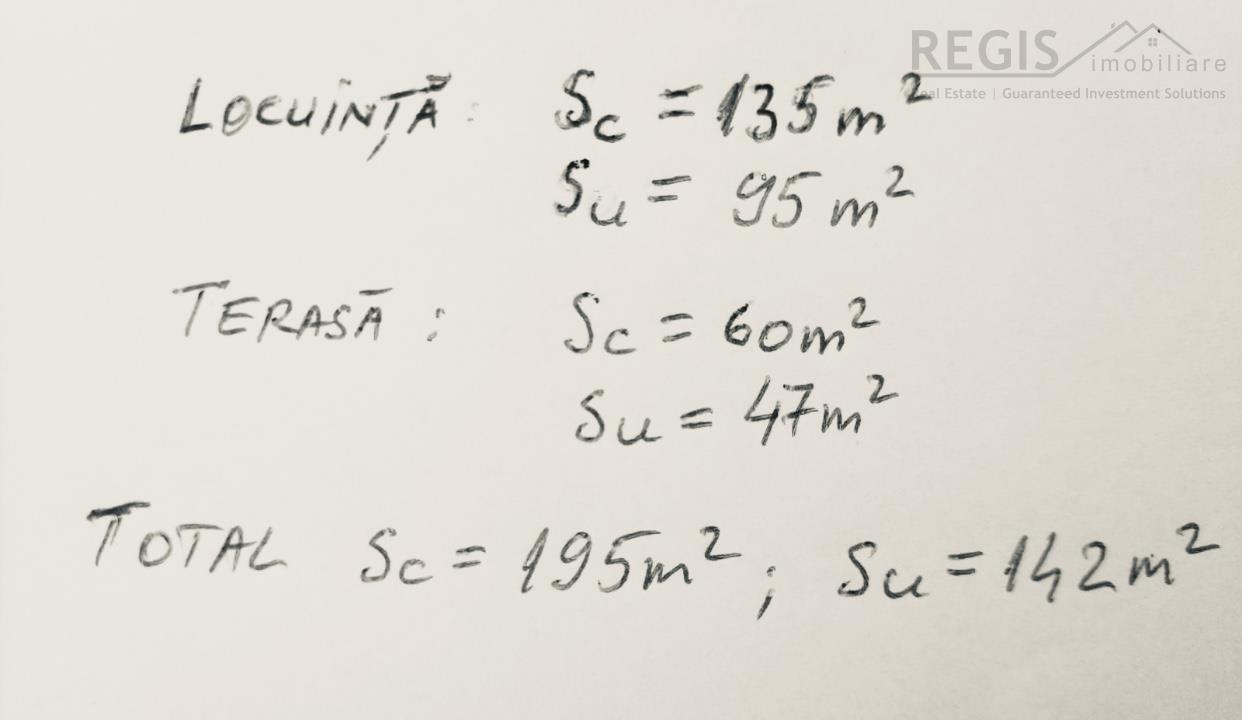 REGIS
imobiliare
eal Estate | Guaranteed Investment Solutions
LOCUINȚĂ : Sc = 135 m²
Su = 95 m²
TERASĂ : Sc = 60 m²
Su = 47 m²
TOTAL Sc = 195 m² ; Su = 142 m²